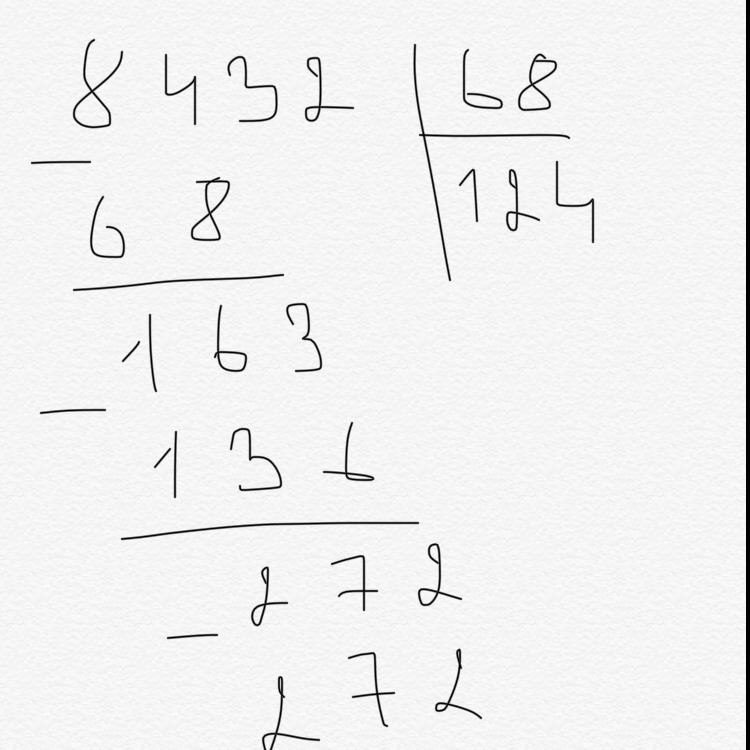 8432 | 68
124
— 68
163
— 136
272
— 272